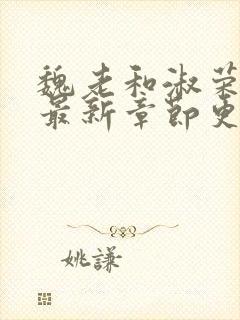 魏老和淑荣
最新章节更
姚謙